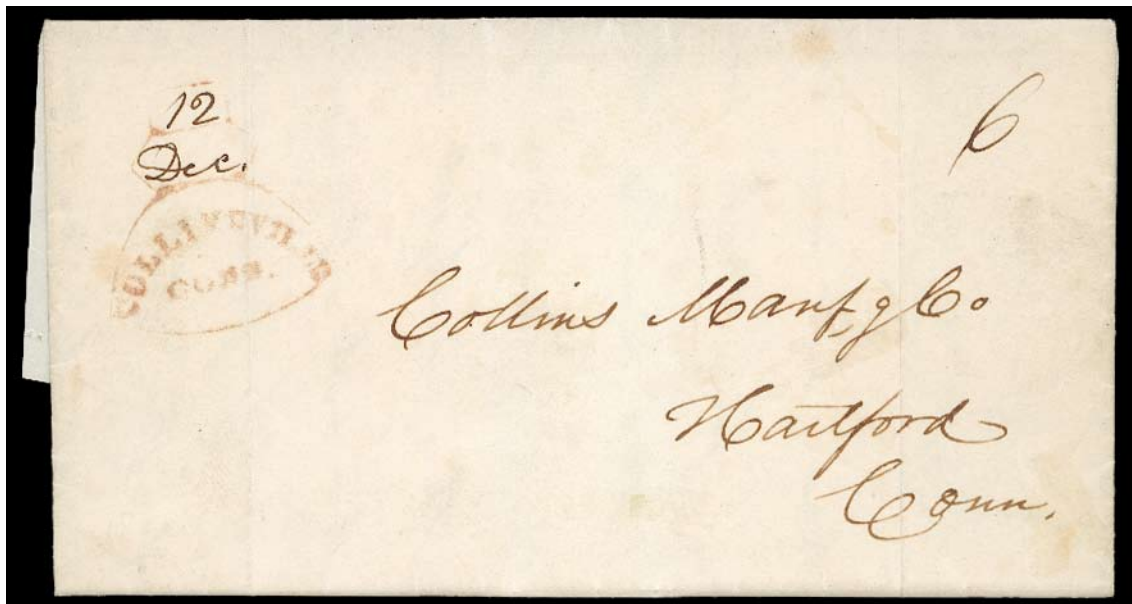 12
Dec.
6
COLLINSVILLE
CONN.
Collins Manfg Co
Hartford
Conn.